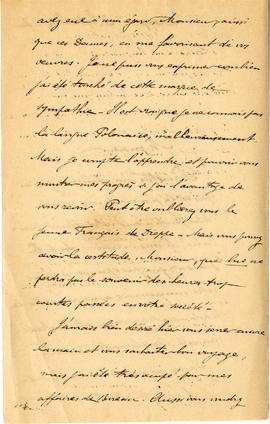 avez eu à mon égard, Monsieur, ainsi
que ces Dames, en me favorisant de vos
œuvres. Je ne puis vous exprimer combien
j'ai été touché de cette marque de
sympathie - Il est vrai que je ne connais pas
la langue Polonaise, malheureusement.
Mais je compte l'apprendre et pouvoir vous
montrer mes progrès si j'ai l'avantage de
vous revoir. Peut-être oublierez vous le
jeune Français de Dieppe - Mais vous pouvez
avoir la certitude, Monsieur, que lui ne
perdra pas le souvenir des heures trop
courtes passées en votre société -
J'aurais bien désiré hier vous serrer encore
la main et vous souhaiter bon voyage,
mais j'ai été très occupé par mes
affaires de Bureau. Aussi vous voudrez